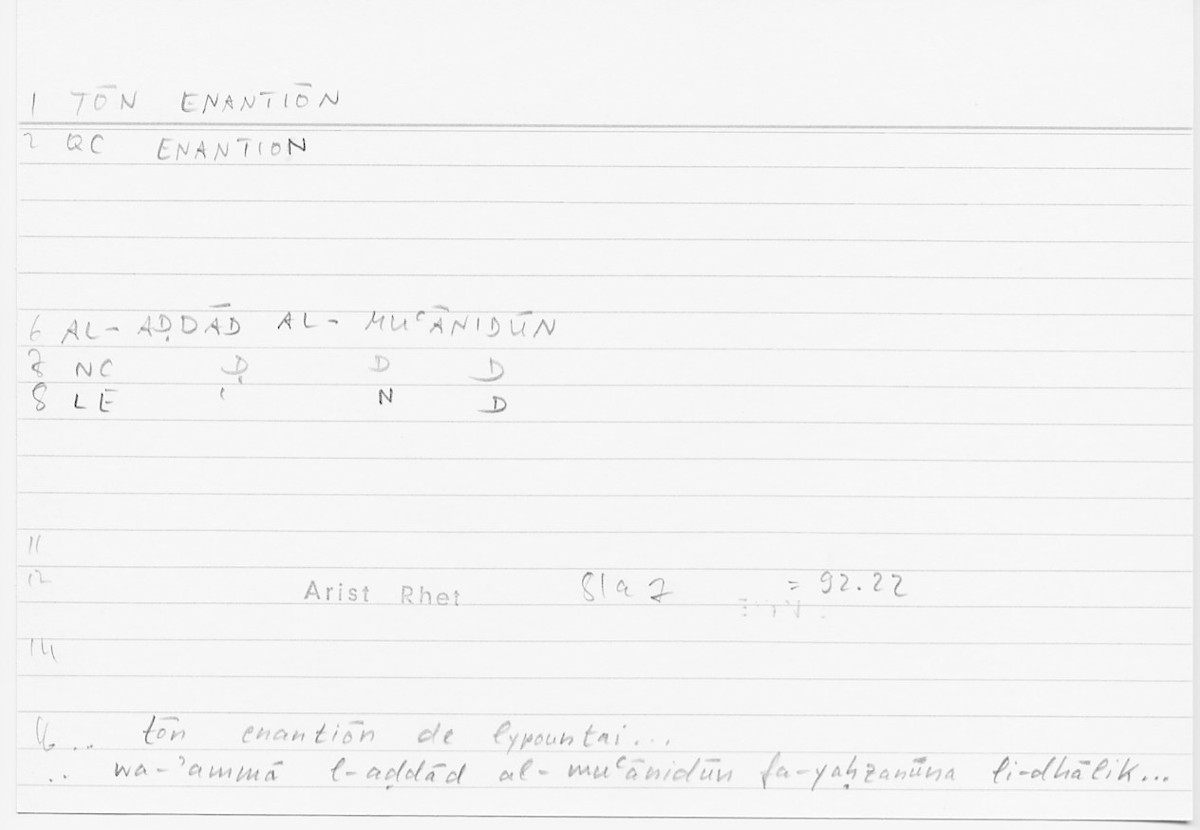 1 TŌN ENANTIŌN
2 QC ENANTION
6 AL- AḌDĀD AL- MUʿĀNIDŪN
7 NC Ḍ D D
8 LE ʿ N D
11
12 Arist Rhet 81a7 = 92.22
14
16 .. tōn enantiōn de lypountai...
.. wa-ʾammā l-aḍdād al-muʿānidūn fa-yaḥzanūna li-dhālik...